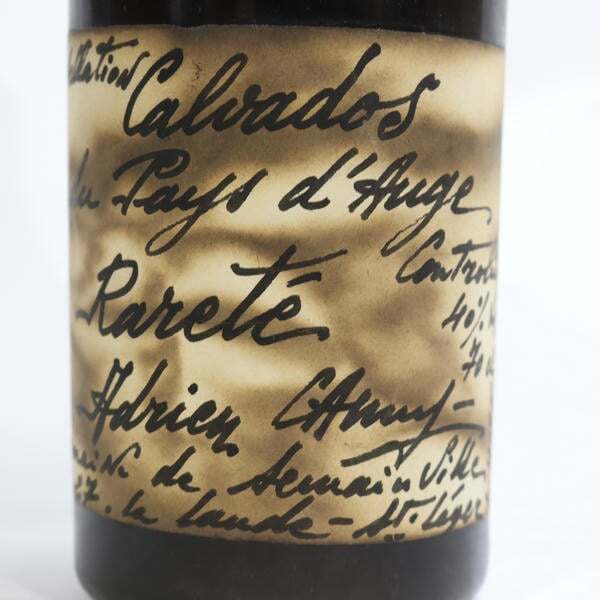 ellation Calvados
du Pays d'Auge
Contrôlé
Rareté
40%
70
Adrien CAmuy-
maine de Semainville
27. la lande-St. Léger